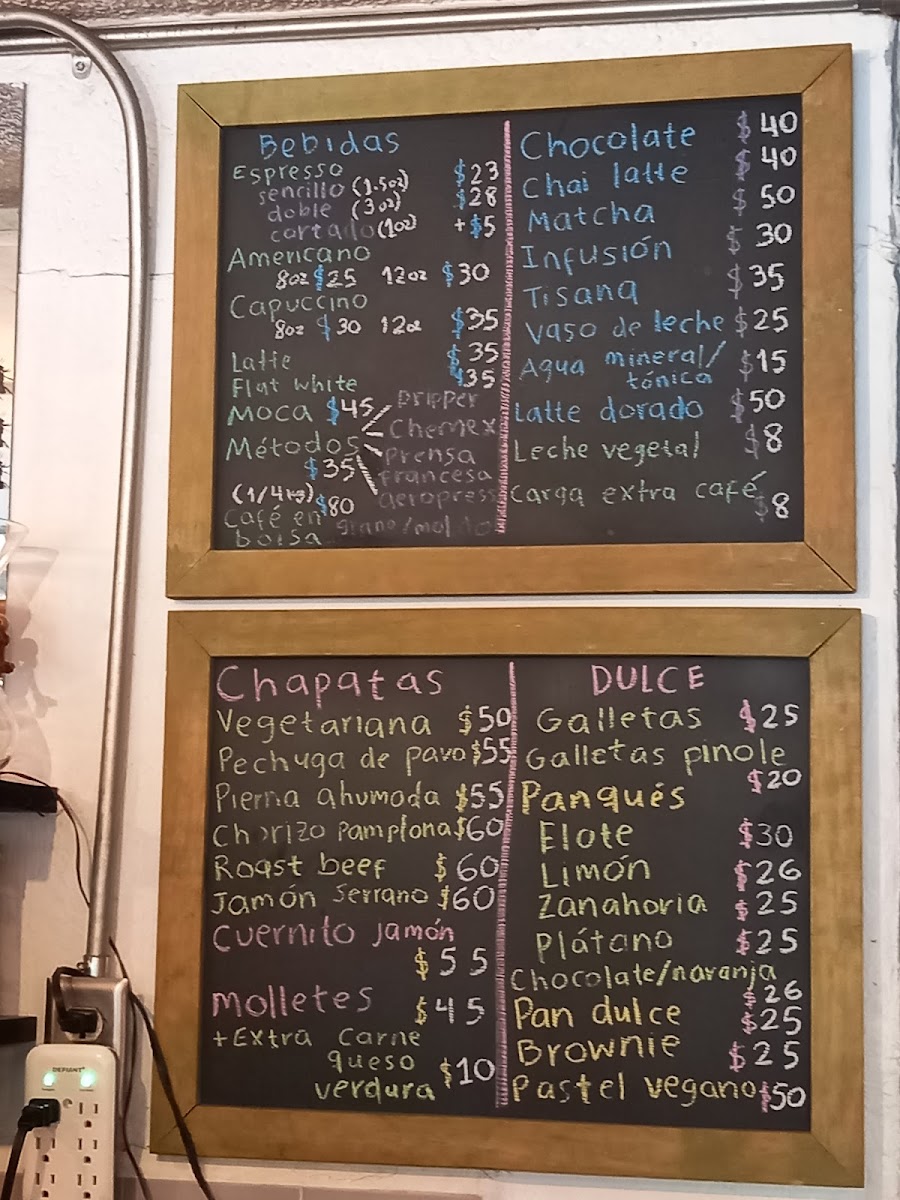 Bebidas
Espresso
sencillo (1.5oz) $23
doble (3oz) $28
cortado (1oz) +$5
Americano
8oz $25 12oz $30
Capuccino
8oz $30 12oz $35
Latte $35
Flat white $35
Moca $45
Métodos $35
Dripper
Chemex
Prensa
francesa
aeropress
(1/4kg) $80
Café en
bolsa grano/molido
Chocolate $40
Chai latte $40
Matcha $50
Infusión $30
Tisana $35
Vaso de leche $25
Agua mineral/
tónica $15
Latte dorado $50
Leche vegetal $8
Carga extra café $8
Chapatas
Vegetariana $50
Pechuga de pavo $55
Pierna ahumada $55
Chorizo Pamplona $60
Roast beef $60
Jamón Serrano $60
Cuernito jamón
$55
Molletes $45
+Extra carne
queso
verdura $10
DULCE
Galletas $25
Galletas pinole
$20
Panqués
Elote $30
Limón $26
Zanahoria $25
Plátano $25
Chocolate/naranja
$26
Pan dulce $25
Brownie $25
Pastel vegano $50
DEFIANT